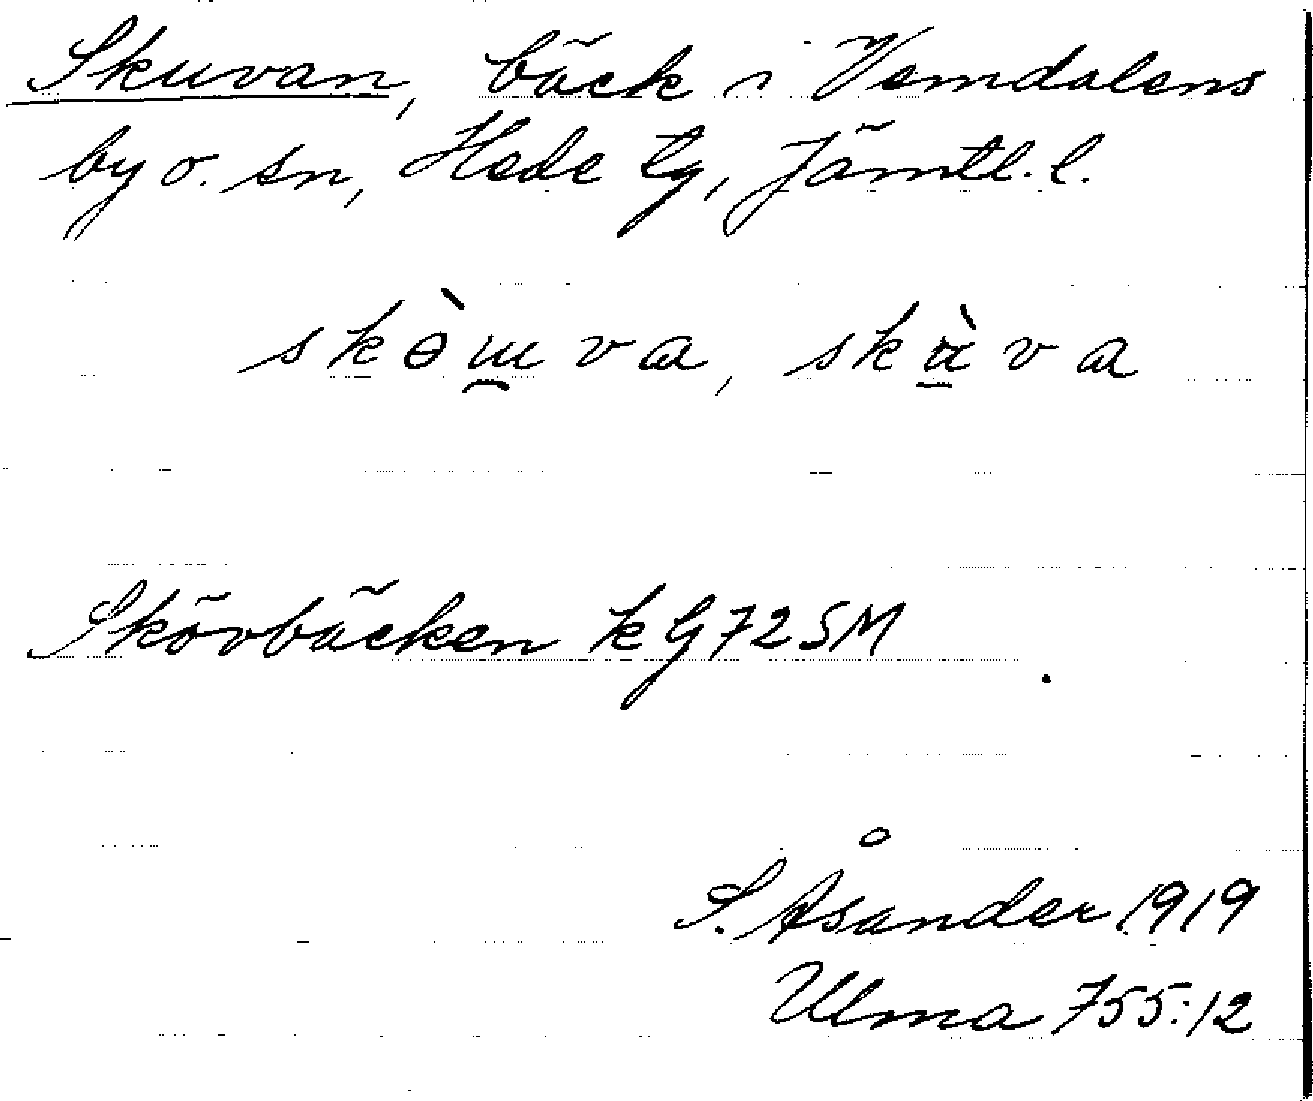 Skuvan, bäck i Vemdalens
by o. sn, Hede tg, Jämtl. l.
skɵ̀ɯ̯va, skὰ̠va
Skövbäcken kG72SM
S. Åsander 1919
Ulma 755:12